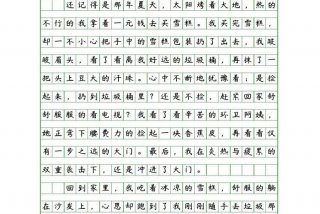 还记得是那年夏天，太阳烤着大地，热的
不行的我拿着一元钱去买雪糕。我买完雪糕，
却一不小心把手中的雪糕包装扔了出去，我皱
皱眉头，看了看离我好远的垃圾桶，再抹了一
把头上豆大的汗珠。心中不断地犹豫着：是捡
起来，扔到垃圾桶里？还是不捡，赶紧回家舒
舒服服的看电视？我看了看辛苦的环卫阿姨，
她正弯下腰费力的捡了一块香蕉皮，再看看仅
有一步之远的大门。最后，我在炎热与疲累的
双重袭击下，还是冲进了大门。
回到家里，我吃着冰凉的雪糕，舒服的躺
在沙发上，心思却跑到了我刚刚随手丢垃圾的